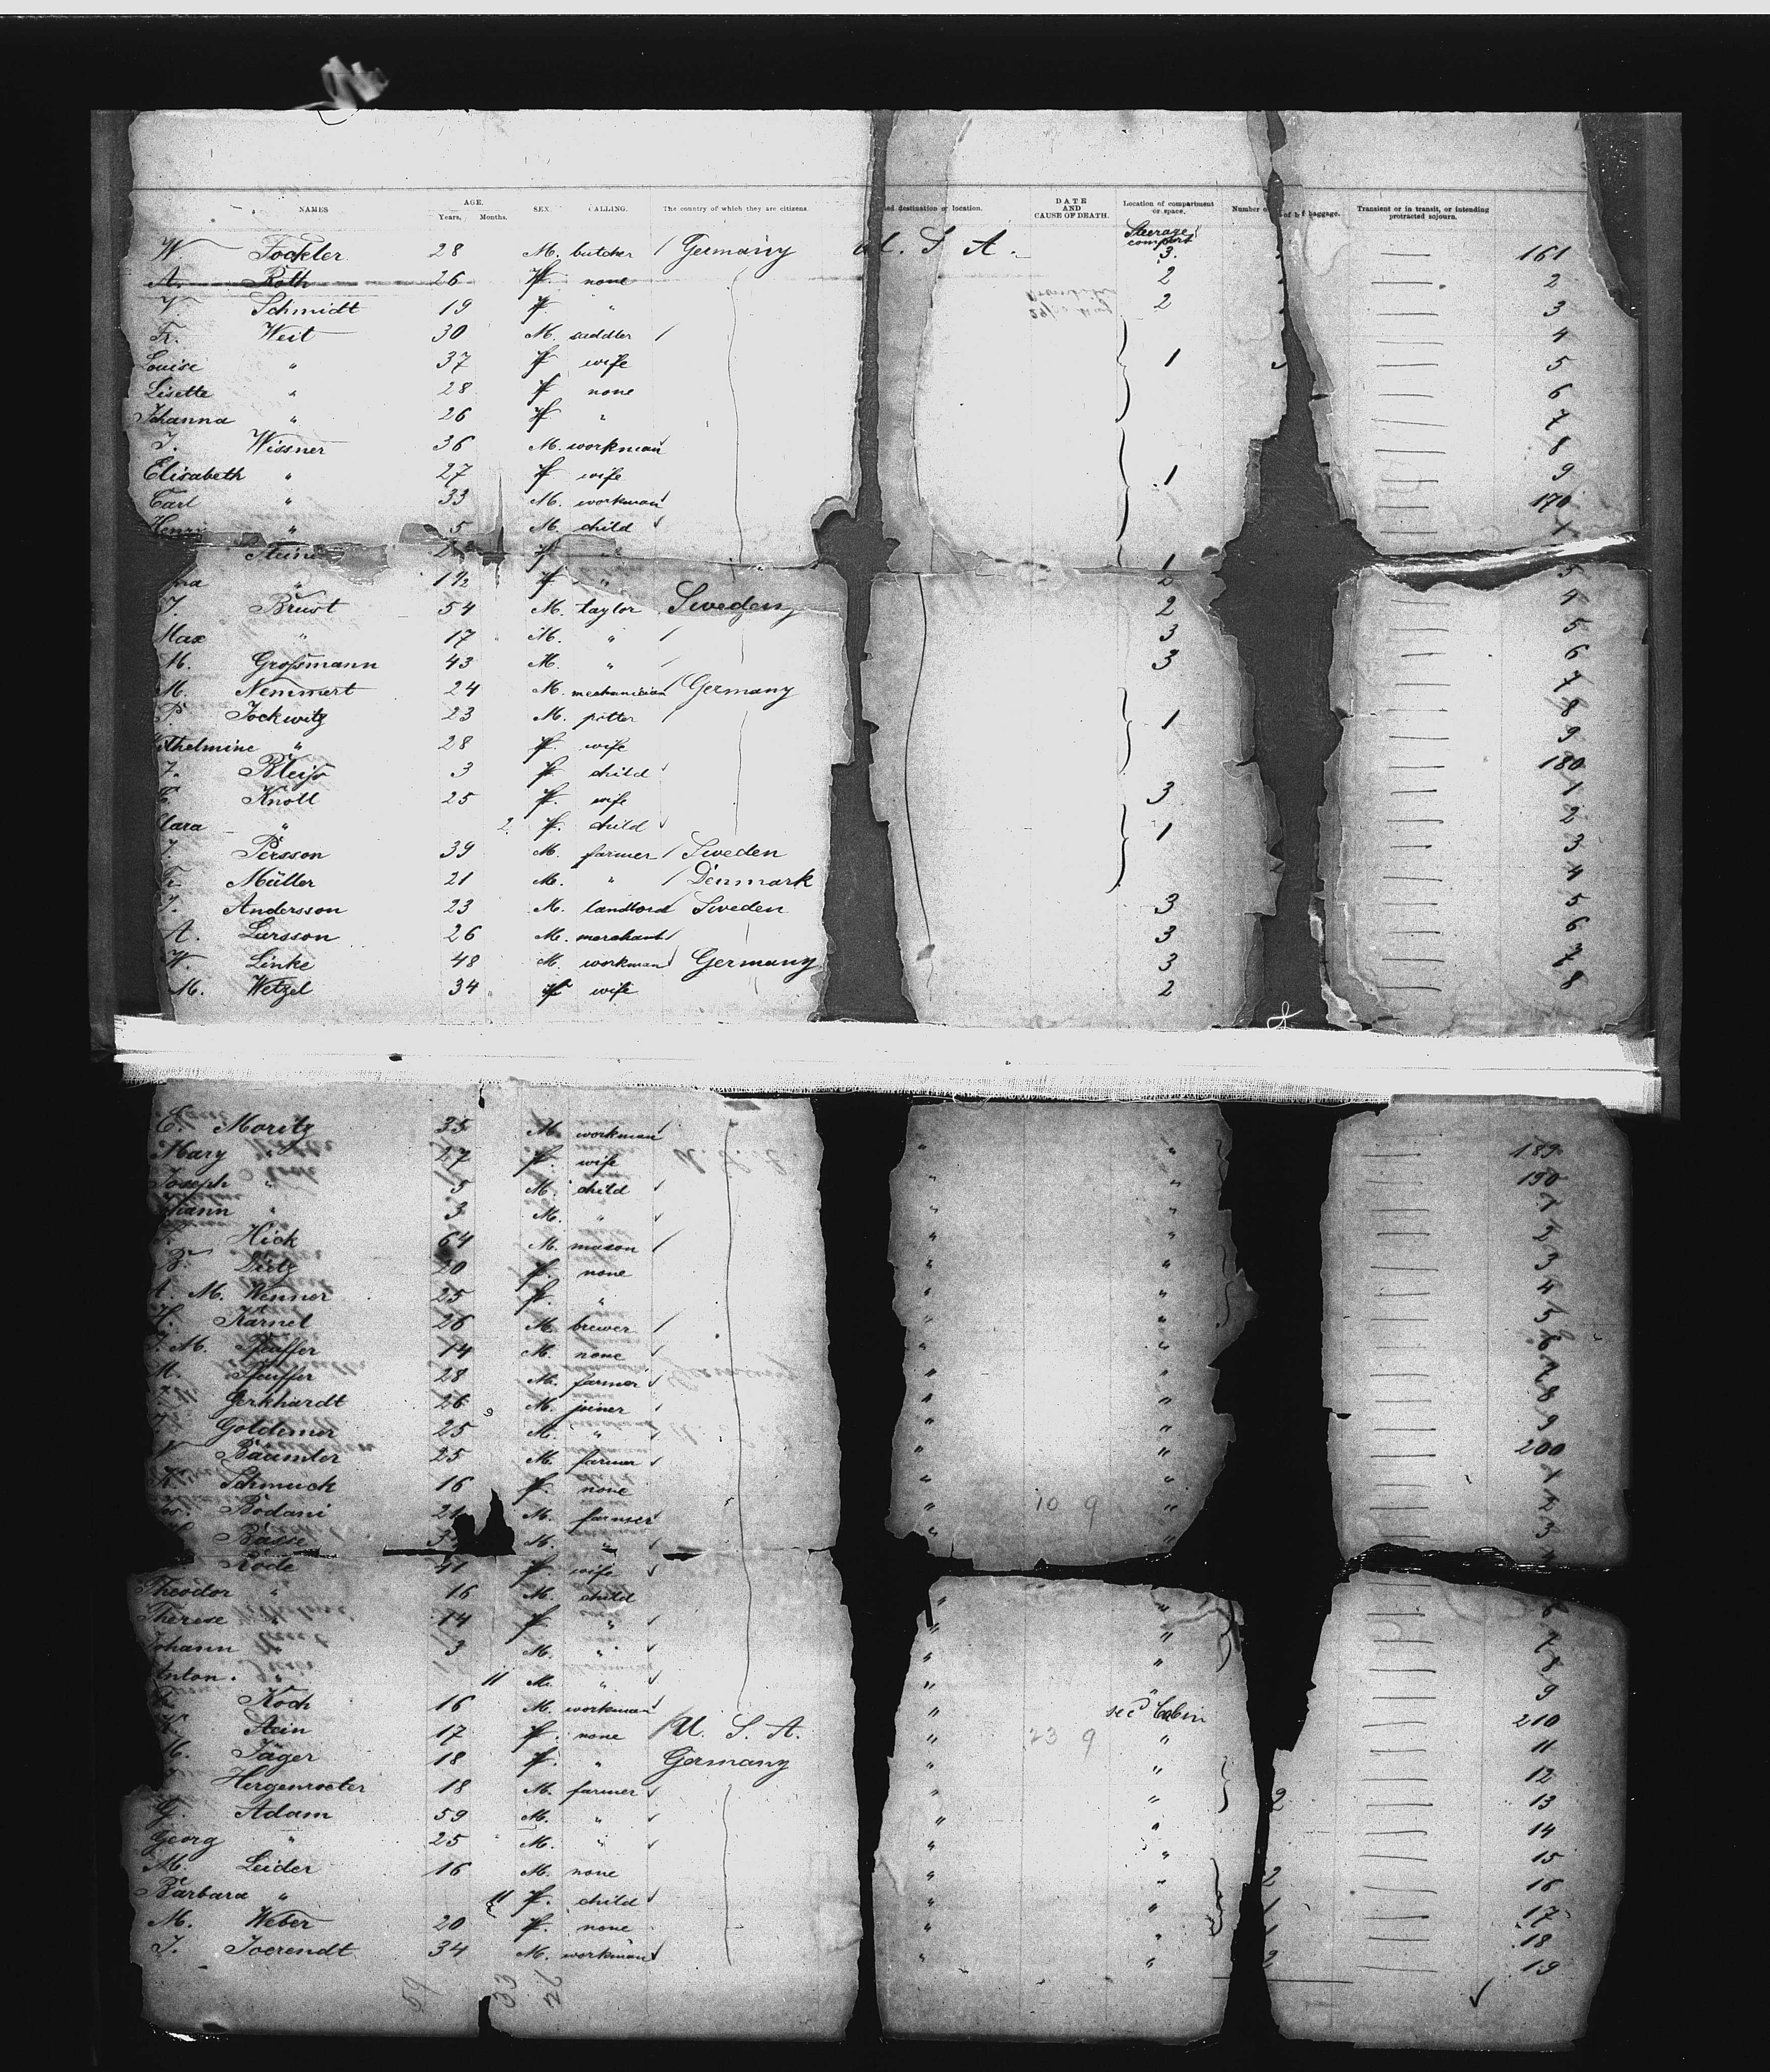 NAMES AGE. Years, Months. SEX. CALLING. The country of which they are citizens. destination or location. DATE AND CAUSE OF DEATH. Location of compartment or space. Number of baggage. Transient or in transit, or intending protracted sojourn.
Steerage
W. Fockler 28 M. butcher / Germany U. S. A. compart 3. 161
A. Roth 26 F. none 2 2
V. Schmidt 19 F. " 2 3
Fr. Weit 30 M. saddler / 4
Louise " 37 F wife 1 5
Lisette " 28 F none 6
Johanna " 26 F " 7
J. Wissner 36 M. workman 8
Elisabeth " 27 F wife 1 9
Carl " 33 M. workman 170
Henri " 5 M. child 1
Stein F " 1
" 1 1/2 F " 2 3
J. Brust 54 M. taylor Sweden 2 4
Max " 17 M. " / 3 5
M. Großmann 43 M. " / 3 6
M. Nemmert 24 M. mechanician / Germany 7
P. Jockwitz 23 M. potter / 1 8
Wilhelmine " 28 F. wife 9
F. Bleiß 3 F. child 180
Knoll 25 F. wife 3 1
Clara " 2 F. child 1 2
J. Persson 39 M. farmer / Sweden 3
Fr. Müller 21 M. " / Denmark 4
J. Andersson 23 M. landlord Sweden 3 5
A. Larsson 26 M. merchant / 3 6
W. Linke 48 M. workman Germany 3 7
M. Wetzel 34 F wife 2 8
C. Moritz 35 M. workman
Mary " 27 F. wife " " 189
Joseph " 5 M. child " " 190
Johann " 3 M. " " " 1
Hick 64 M. mason / " " 2
B. Dietz 20 F. none " " 3
A. M. Wenner 25 F. " " " 4
H. Karnel 26 M. brewer / " " 5
J. M. Pfeuffer 14 M. none " " 6
M. Pfeuffer 28 M. farmer " " 7
Gerkhardt 26 M. joiner " " 8
Goldemer 25 M. " " " 9
Bäumler 25 M. farmer " " 200
Schmuck 16 F. none " " 1
Bodani 21 M. farmer " 10 9 " 2
Basse M. " " " 3
Rode 41 F. wife
Theodor " 16 M. child " "
Therese " 14 F. " " " 6
Johann " 3 M. " " " 7
Anton " 11 M. " " " 8
Koch 16 M. workman " sec'd Cabin 9
Stein 17 F. none / U. S. A. " 23 9 " 210
Jäger 18 F. " Germany " " 11
Hergenroeter 18 M. farmer " " 12
G. Adam 59 M. " " " 2 13
Georg " 25 M. " " " 14
M. Leider 16 M. none " " 15
Barbara " 11 F. child " " 2 16
M. Weber 20 F. none " " 1 17
J. Joerendt 34 M. workman " " 1 18
2 19
59 33 26